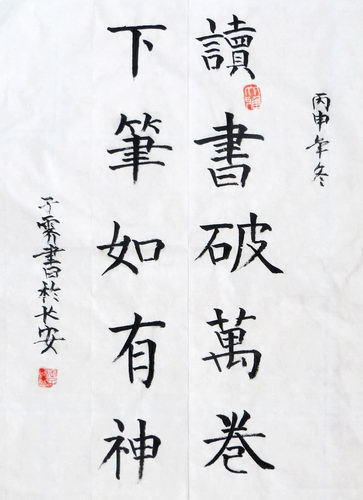 丙申年冬
讀書破萬卷
下筆如有神
子霽書於长安